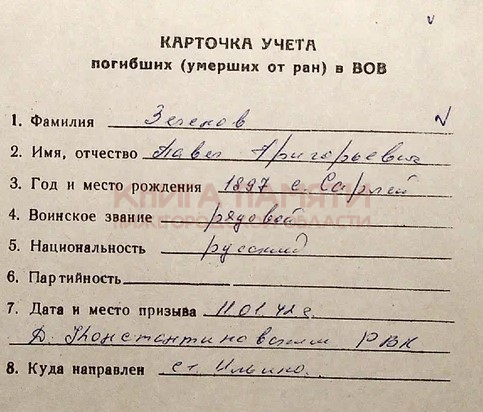 КАРТОЧКА УЧЕТА
погибших (умерших от ран) в ВОВ
1. Фамилия Зеленов
2. Имя, отчество Павел Григорьевич
3. Год и место рождения 1897 с Сарлей
КНИГА ПАМЯТИ
НИЖЕГОРОДСКОЙ ОБЛАСТИ
4. Воинское звание рядовой
5. Национальность русский
6. Партийность
7. Дата и место призыва 11 01 42 г.
Д. Константиновским РВК
8. Куда направлен ст. Ильино.